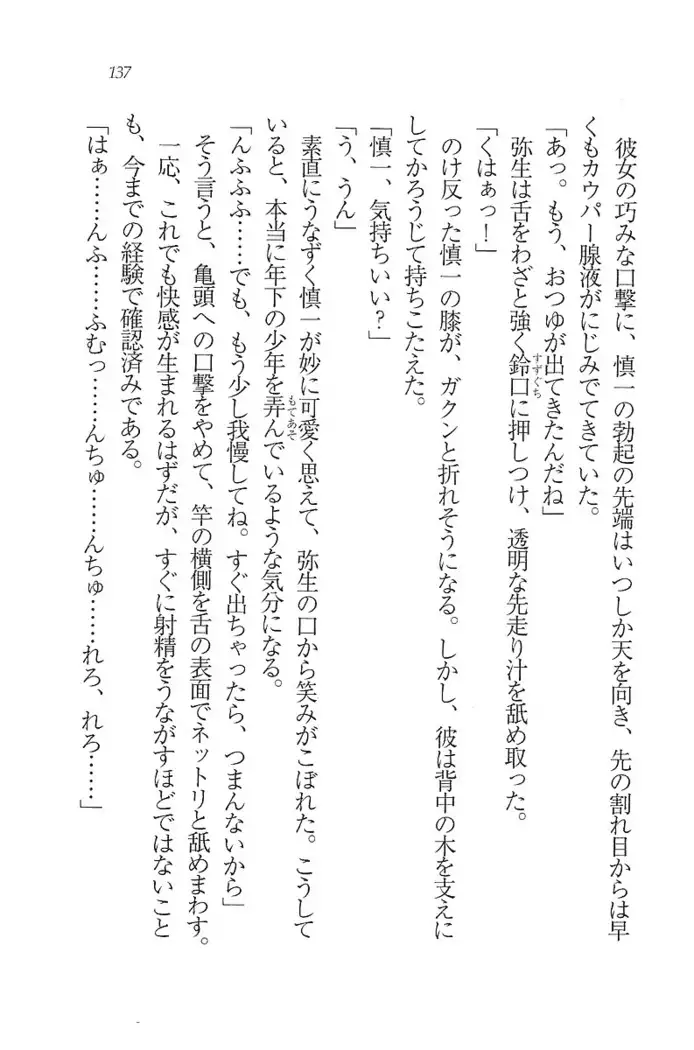 137
彼女の巧みな口撃に、慎一の勃起の先端はいつしか天を向き、先の割れ目からは早
くもカウパー腺液がにじみでてきていた。
「あっ。もう、おつゆが出てきたんだね」
弥生は舌をわざと強く鈴口に押しつけ、透明な先走り汁を舐め取った。
すずぐち
「くはぁっ！」
のけ反った慎一の膝が、ガクンと折れそうになる。しかし、彼は背中の木を支えに
してかろうじて持ちこたえた。
「慎一、気持ちいい？」
「う、うん」
素直にうなずく慎一が妙に可愛く思えて、弥生の口から笑みがこぼれた。こうして
いると、本当に年下の少年を弄んでいるような気分になる。
もてあそ
「んふふふ……でも、もう少し我慢してね。すぐ出ちゃったら、つまんないから」
そう言うと、亀頭への口撃をやめて、竿の横側を舌の表面でネットリと舐めまわす。
一応、これでも快感が生まれるはずだが、すぐに射精をうながすほどではないこと
も、今までの経験で確認済みである。
「はぁ……んふ……ふむっ……んちゅ……んちゅ……れろ、れろ……」